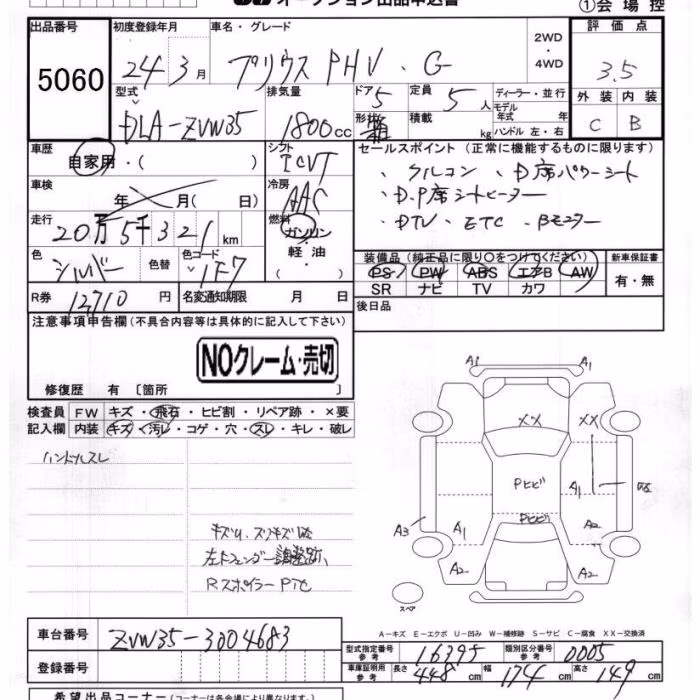 オークション出品申込書
①会場控
出品番号
5060
初度登録年月
24年3月
車名・グレード
プリウス PHV . G
2WD
・
4WD
評価点
3.5
外装 内装
C B
型式
DLA-ZVW35
排気量
1800cc
ドア
5
定員
5人
形状
積載
kg
ディーラー・並行
モデル年式 年
ハンドル 左・右
車歴
自家用・( )
シフト
ICVT
車検
年 月( 日)
冷房
AAC
走行
20万5千321km
燃料
ガソリン
・
軽油
( )
色
シルバー
色替
色コード
1F7
R券
12710円
名変通知期限 月 日
セールスポイント (正常に機能するものに限ります)
、クルコン 、D席パワーシート
、D.P席シートヒーター
、DTV 、ETC 、Bモニター
装備品 (純正品に限り○をつけてください)
PS PW ABS エアB AW
SR ナビ TV カワ
新車保証書
有・無
後日品
注意事項申告欄(不具合内容等は具体的に記入して下さい)
NOクレーム・売切
修復歴 有 〔箇所 〕
検査員記入欄
FW キズ・飛石・ヒビ割・リペア跡・×要
内装 キズ・汚レ・コゲ・穴・スレ・キレ・破レ
ハンドルスレ
キズU、スリキズ
左フェンダー調整跡、
Rスポイラー
A1 A1
XX XX
Pヒビ A1
Pヒビ
A3 A1 A2
A2 A2
スペア
A-キズ E-エクボ U-凹み W-補修跡 S-サビ C-腐食 XX-交換済
車台番号
ZVW35-3004683
登録番号
型式指定番号 参考
16395
類別区分番号 参考
0005
車庫証明用 参考
長さ 448cm 幅 174cm 高さ 149cm
希望出品コーナー (コーナーは各会場により異なります)